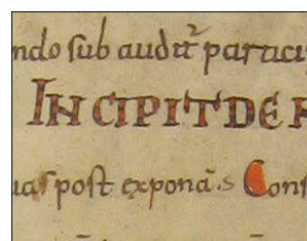 ndo sub audit᷑ partici
INCIPIT DE
uas post exponā.s Cons